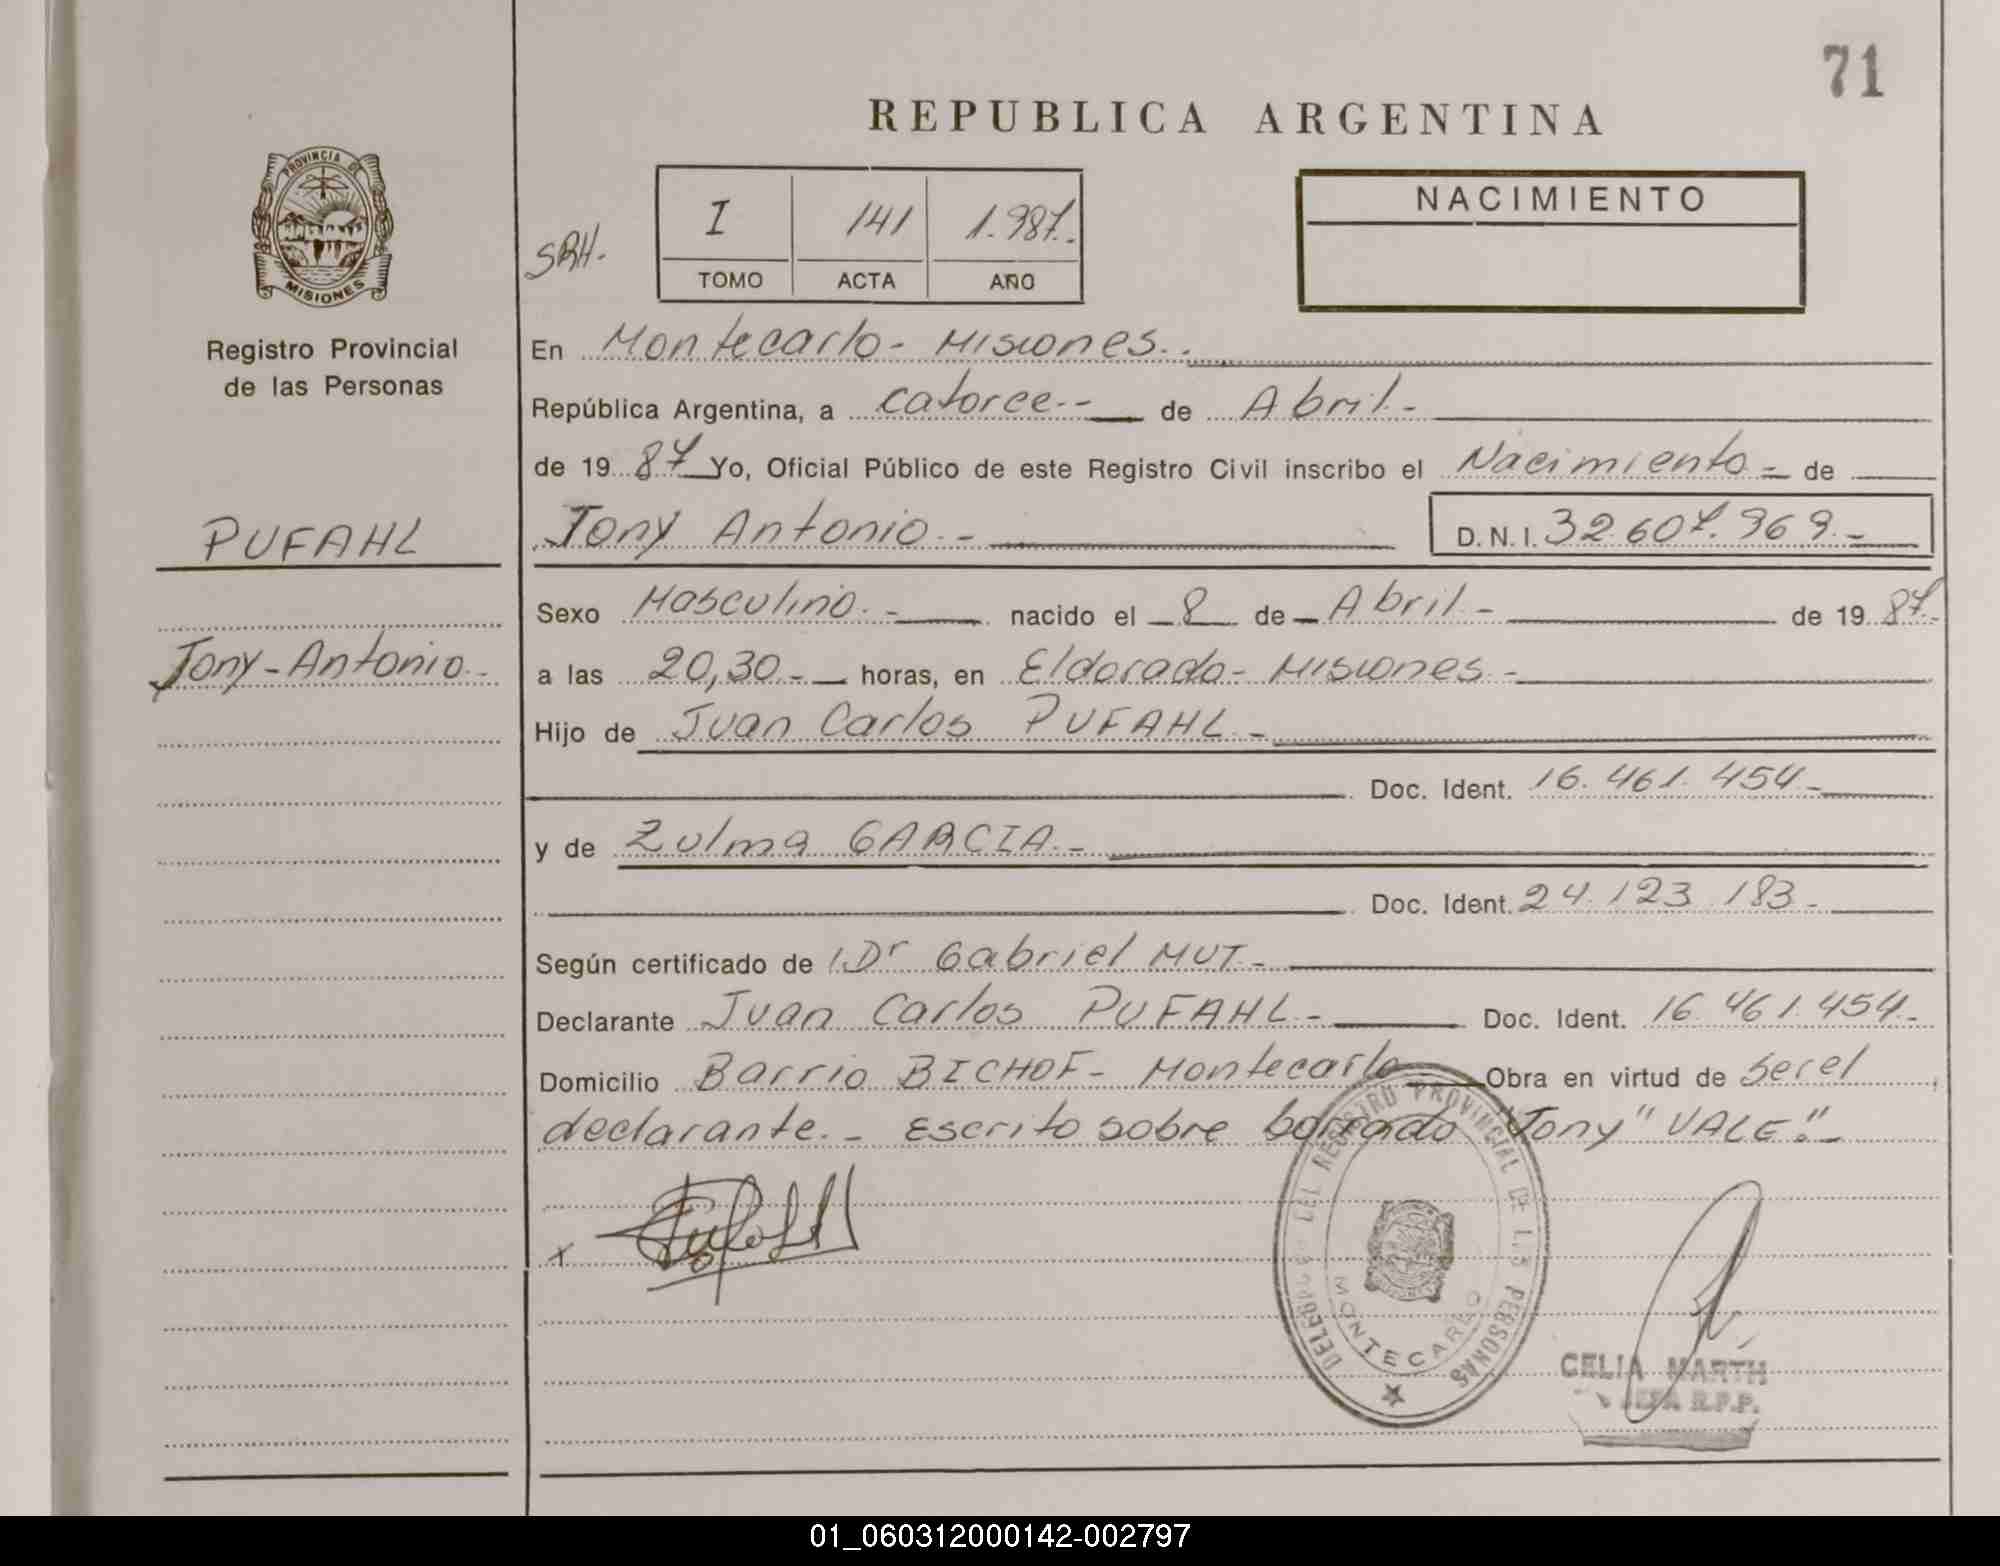 71
REPUBLICA ARGENTINA
PROVINCIA DE
MISIONES
Registro Provincial
de las Personas
SRH.
I 141 1.987.-
TOMO ACTA AÑO
NACIMIENTO
En Montecarlo- Misiones.-
República Argentina, a catorce.-- de Abril.-
de 19 87 Yo, Oficial Público de este Registro Civil inscribo el Nacimiento.- de
PUFAHL
Tony Antonio.-
D.N.I. 32.607.969.-
Sexo Masculino.- nacido el 8 de Abril.- de 19 87.-
Tony-Antonio.-
a las 20,30.- horas, en Eldorado- Misiones.-
Hijo de Juan Carlos PUFAHL.-
Doc. Ident. 16.461.454.-
y de Zulma GARCIA.-
Doc. Ident. 24.123.183.-
Según certificado de Dr Gabriel MUT.-
Declarante Juan Carlos PUFAHL.- Doc. Ident. 16.461.454.-
Domicilio Barrio BICHOF- Montecarlo Obra en virtud de Ser el
declarante.- Escrito sobre borrado "Tony" VALE".-
x
DELEGACION DEL REGISTRO PROVINCIAL DE LAS PERSONAS
MONTECARLO
CELIA MARTH
JEFA R.P.P.
01_060312000142-002797